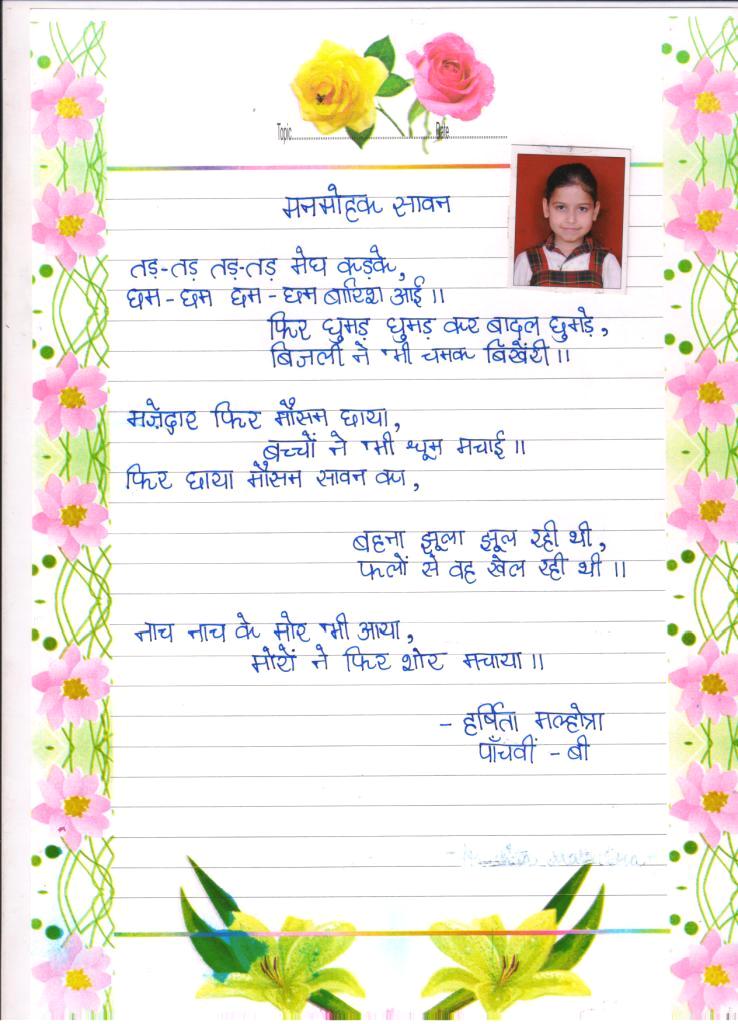 Topic Date
मनमोहक सावन
तड़-तड़ तड़-तड़ मेघ कड़के,
छम-छम छम-छम बारिश आई।।
फिर घुमड़ घुमड़ कर बादल घुमड़े,
बिजली ने भी चमक बिखेरी।।
मज़ेदार फिर मौसम छाया,
बच्चों ने भी धूम मचाई।।
फिर छाया मौसम सावन का,
बहना झूला झूल रही थी,
फलों से वह खेल रही थी।।
नाच नाच के मोर भी आया,
मोरों ने फिर शोर मचाया।।
- हर्षिता मल्होत्रा
पाँचवीं - बी